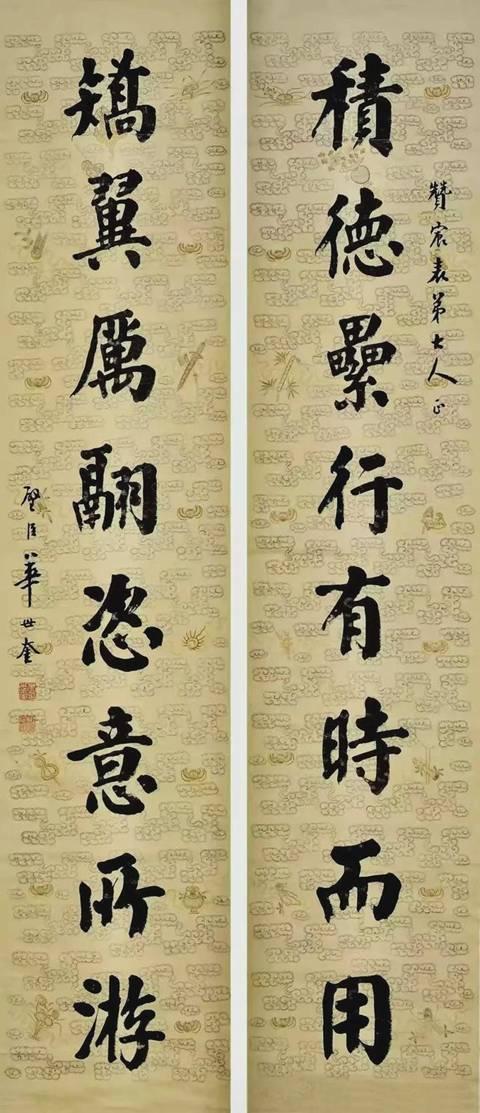 贊宸表弟大人正
積德纍行有時而用
矯翼厲翮恣意所游
璧臣華世奎